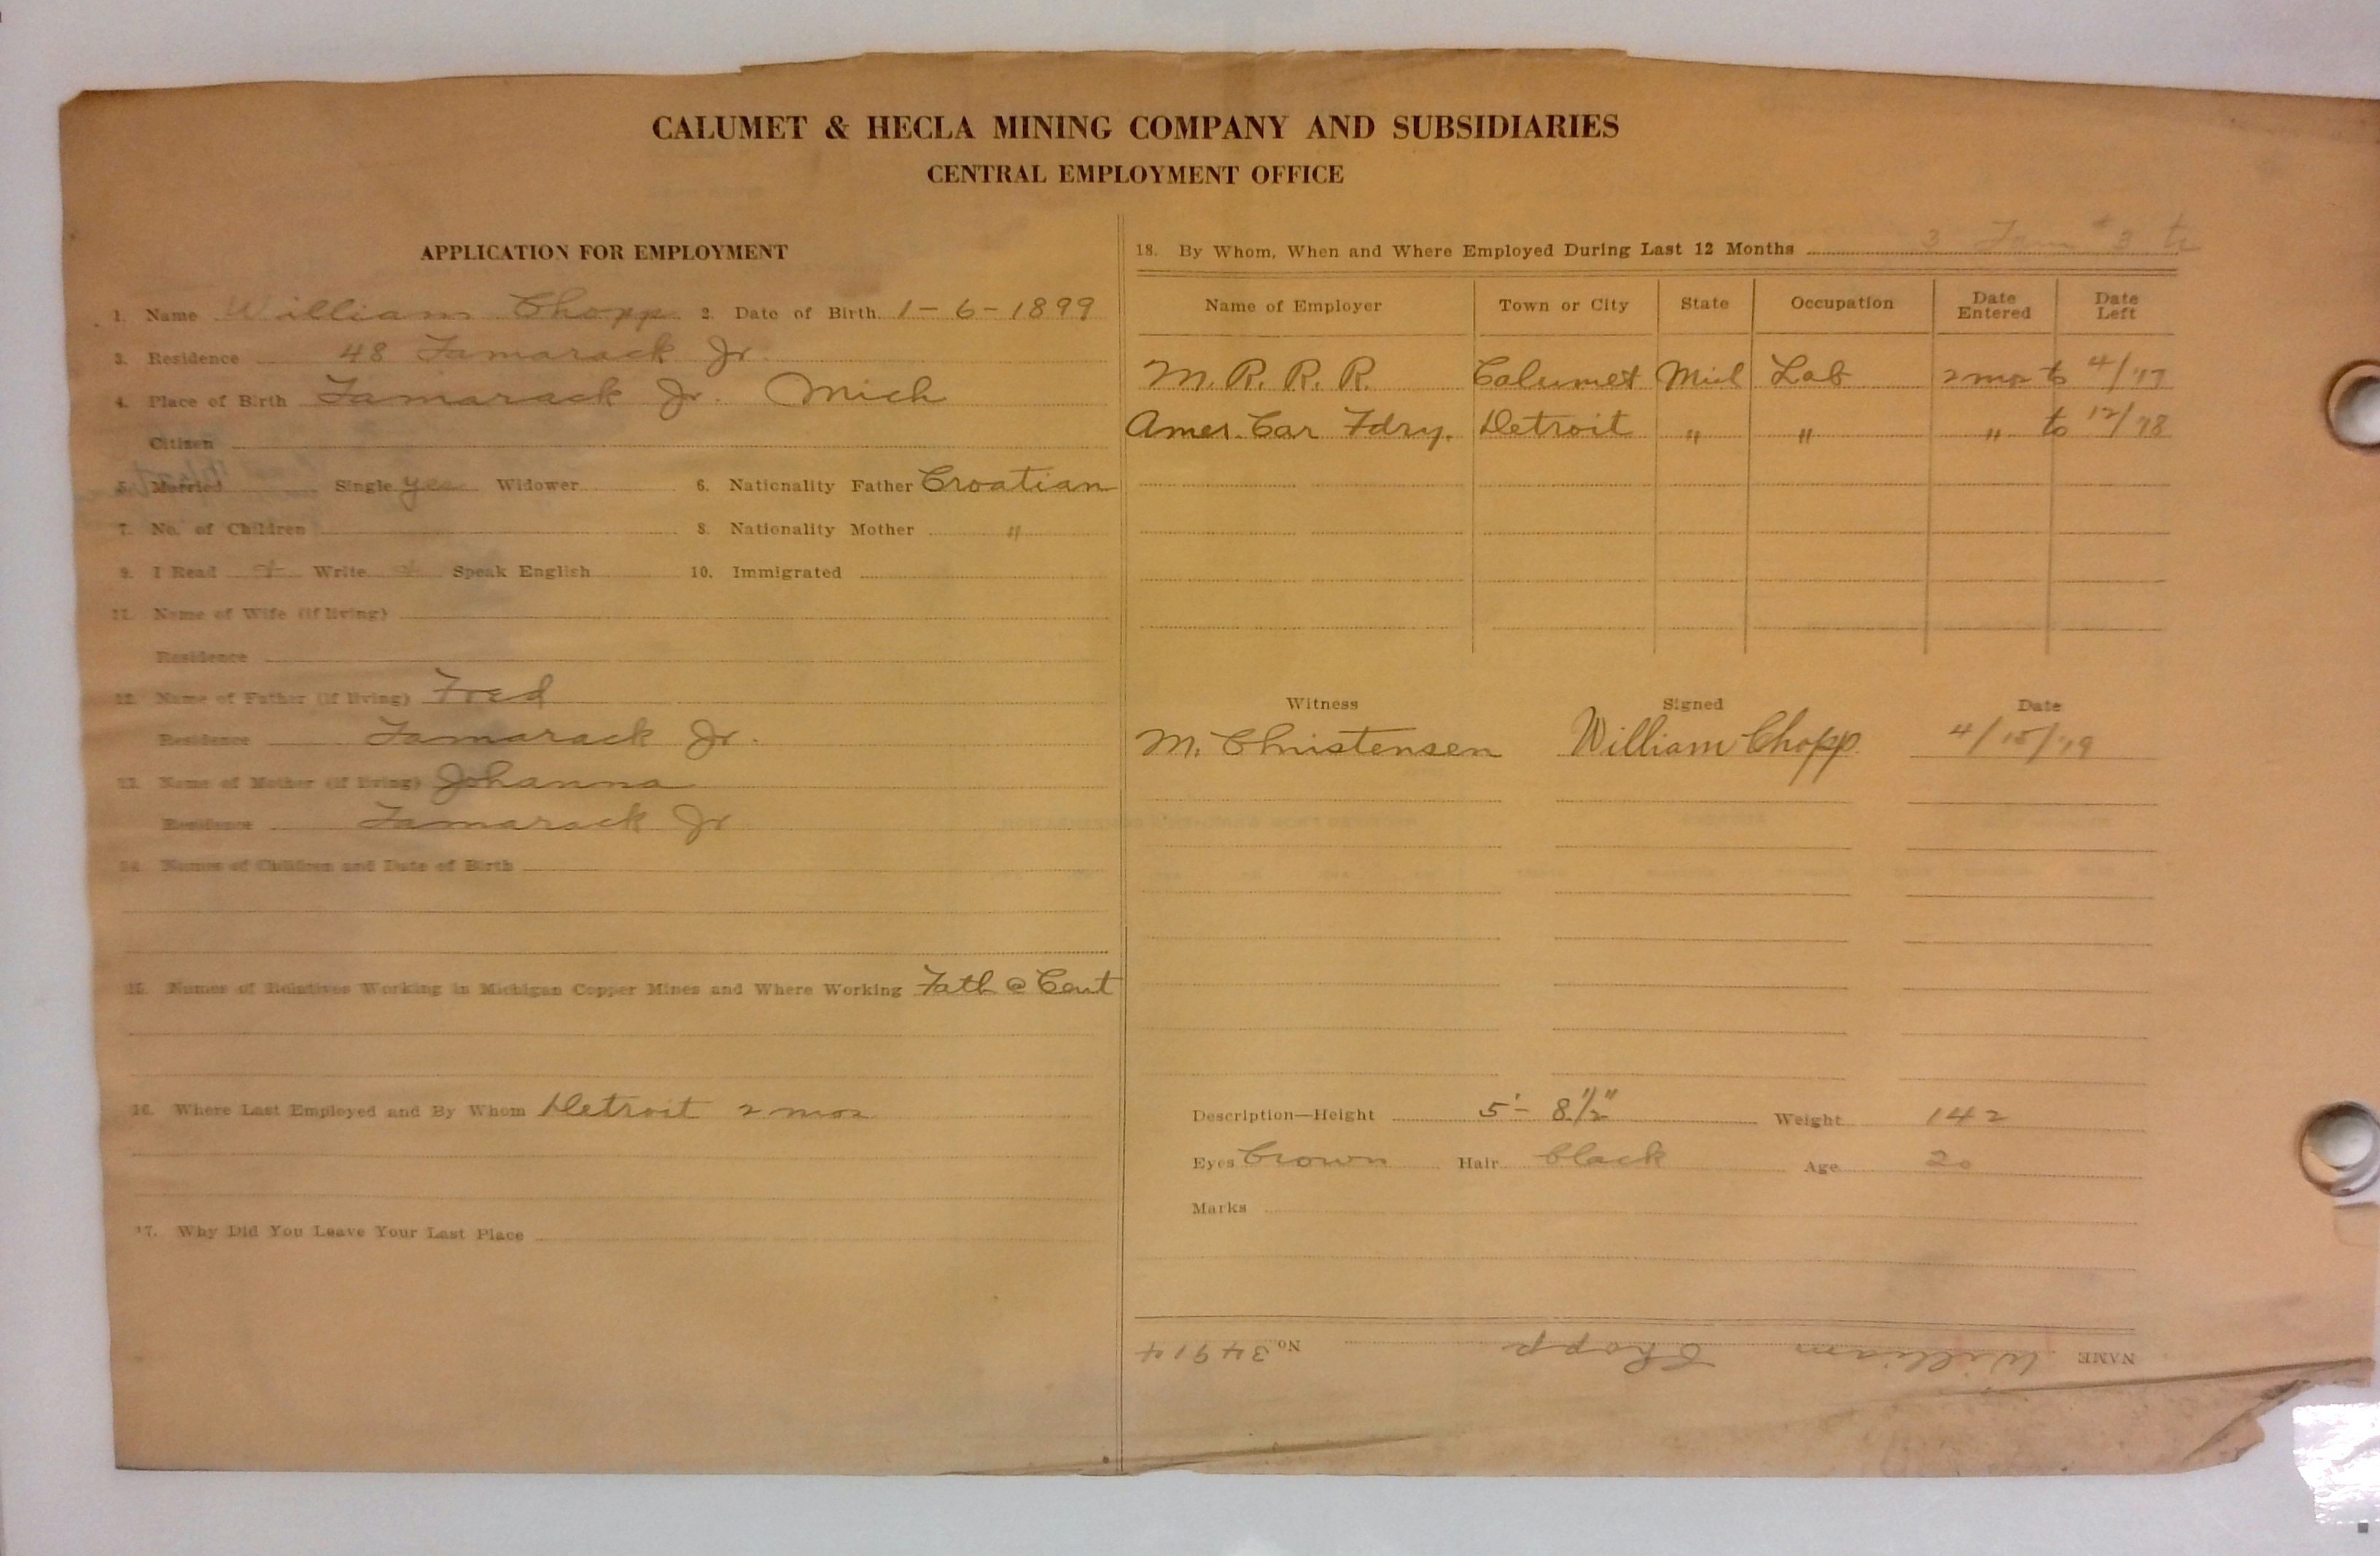 CALUMET & HECLA MINING COMPANY AND SUBSIDIARIES
CENTRAL EMPLOYMENT OFFICE
APPLICATION FOR EMPLOYMENT
1. Name William Chopp 2. Date of Birth 1-6-1899
3. Residence 48 Tamarack Jr.
4. Place of Birth Tamarack Jr. Mich
Citizen
5. Married Single yes Widower 6. Nationality Father Croatian
7. No. of Children 8. Nationality Mother "
9. I Read Write Speak English 10. Immigrated
11. Name of Wife (if living)
Residence
12. Name of Father (if living) Fred
Residence Tamarack Jr.
13. Name of Mother (if living) Johanna
Residence Tamarack Jr
14. Names of Children and Date of Birth
15. Names of Relatives Working in Michigan Copper Mines and Where Working Fath @ Cent
16. Where Last Employed and By Whom Detroit 2 mos
17. Why Did You Leave Your Last Place
18. By Whom, When and Where Employed During Last 12 Months 3 Tam #3 tr
Name of Employer Town or City State Occupation Date Entered Date Left
M. R. R. R. Calumet Mich Lab 2 mo to 4/17
Amer. Car Fdry. Detroit " " " to 12/18
Witness Signed Date
M. Christensen William Chopp 4/15/19
Description—Height 5'- 8 1/2" Weight 142
Eyes brown Hair black Age 20
Marks
NAME William Chopp No 34914